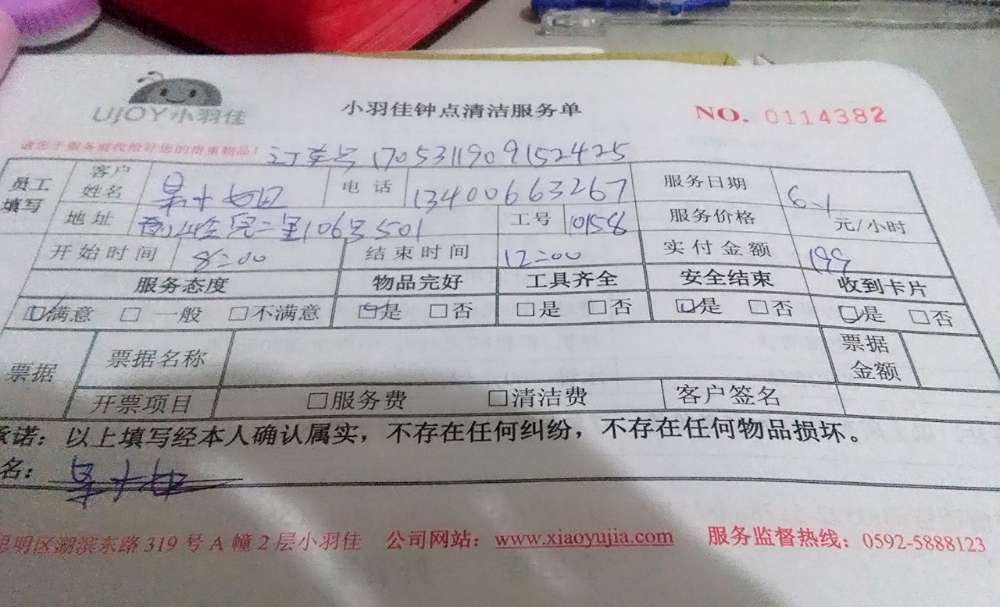 UJOY小羽佳
小羽佳钟点清洁服务单
NO. 0114382
订单号 1705311909152425
员工填写 客户姓名 电话 13400663267 服务日期 6.1
地址 工号 10158 服务价格 元/小时
开始时间 8:00 结束时间 12:00 实付金额 199
服务态度 物品完好 工具齐全 安全结束 收到卡片
☑满意 □一般 □不满意 ☑是 □否 □是 □否 ☑是 □否 ☑是 □否
票据 票据名称 票据金额
开票项目 □服务费 □清洁费 客户签名
承诺：以上填写经本人确认属实，不存在任何纠纷，不存在任何物品损坏。
名：
思明区湖滨东路 319 号 A 幢 2 层小羽佳 公司网站：www.xiaoyujia.com 服务监督热线：0592-5888123